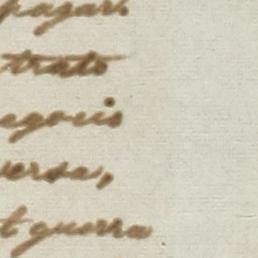 pagari.
trato
egocis
versa,
t guerra